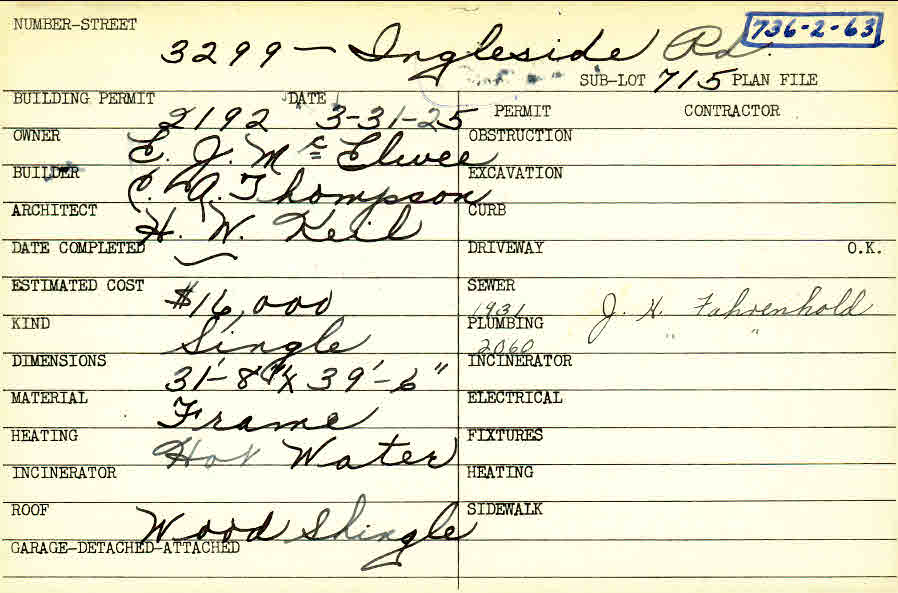 NUMBER-STREET 3299 - Ingleside Rd. 736-2-63
SUB-LOT 715 PLAN FILE
BUILDING PERMIT 2192 DATE 3-31-25
PERMIT CONTRACTOR
OWNER E. J. McElwee
OBSTRUCTION
BUILDER C. A. Thompson
EXCAVATION
ARCHITECT H. W. Keil
CURB
DATE COMPLETED
DRIVEWAY O.K.
ESTIMATED COST $16,000
SEWER 1931 J. H. Fahrenhold
KIND Single
PLUMBING 2060 " "
DIMENSIONS 31'-8" X 39'-6"
INCINERATOR
MATERIAL Frame
ELECTRICAL
HEATING Hot Water
FIXTURES
INCINERATOR
HEATING
ROOF Wood Shingle
SIDEWALK
GARAGE-DETACHED-ATTACHED